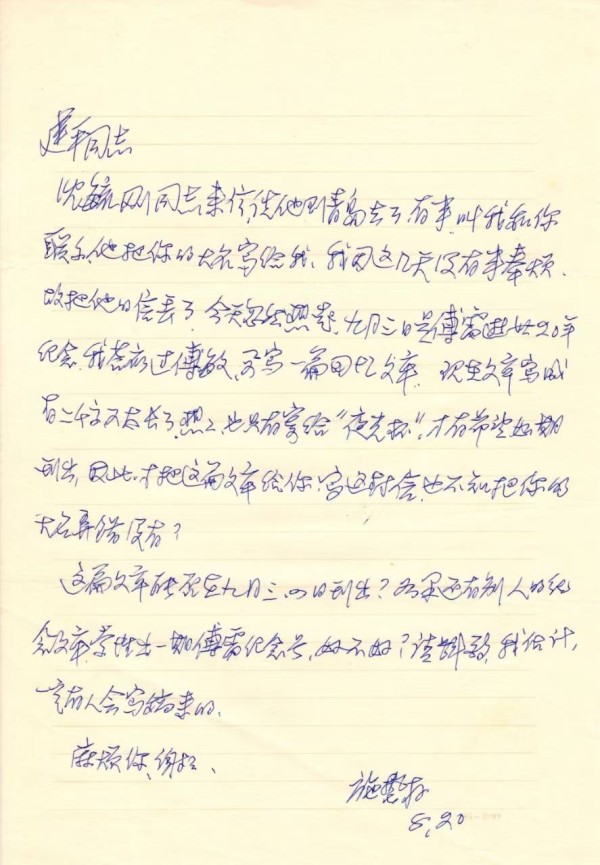 建平同志
沈毓刚同志来信,说他到青岛去了,有事,叫我和你
联系,他把你的大名写给我,我因这几天没有事奉烦,
故把他的信丢了。今天忽然想起,九月三日是傅雷逝世20年
纪念,我答应过傅敏,要写一篇回忆文章。现在文章写成
有二千字,又太长了,想想也只有寄给“夜光杯”,才有希望如期
刊出,因此,才把这篇文章给你。写这封信,也不知把你的
大名弄错没有?
这篇文章能否在九月三、四日刊出?如果还有别人的纪
念文章,出一期傅雷纪念号,好不好?请斟酌,我估计,
会有人会写稿来的。
麻烦你,谢谢、
施蛰存
8,20